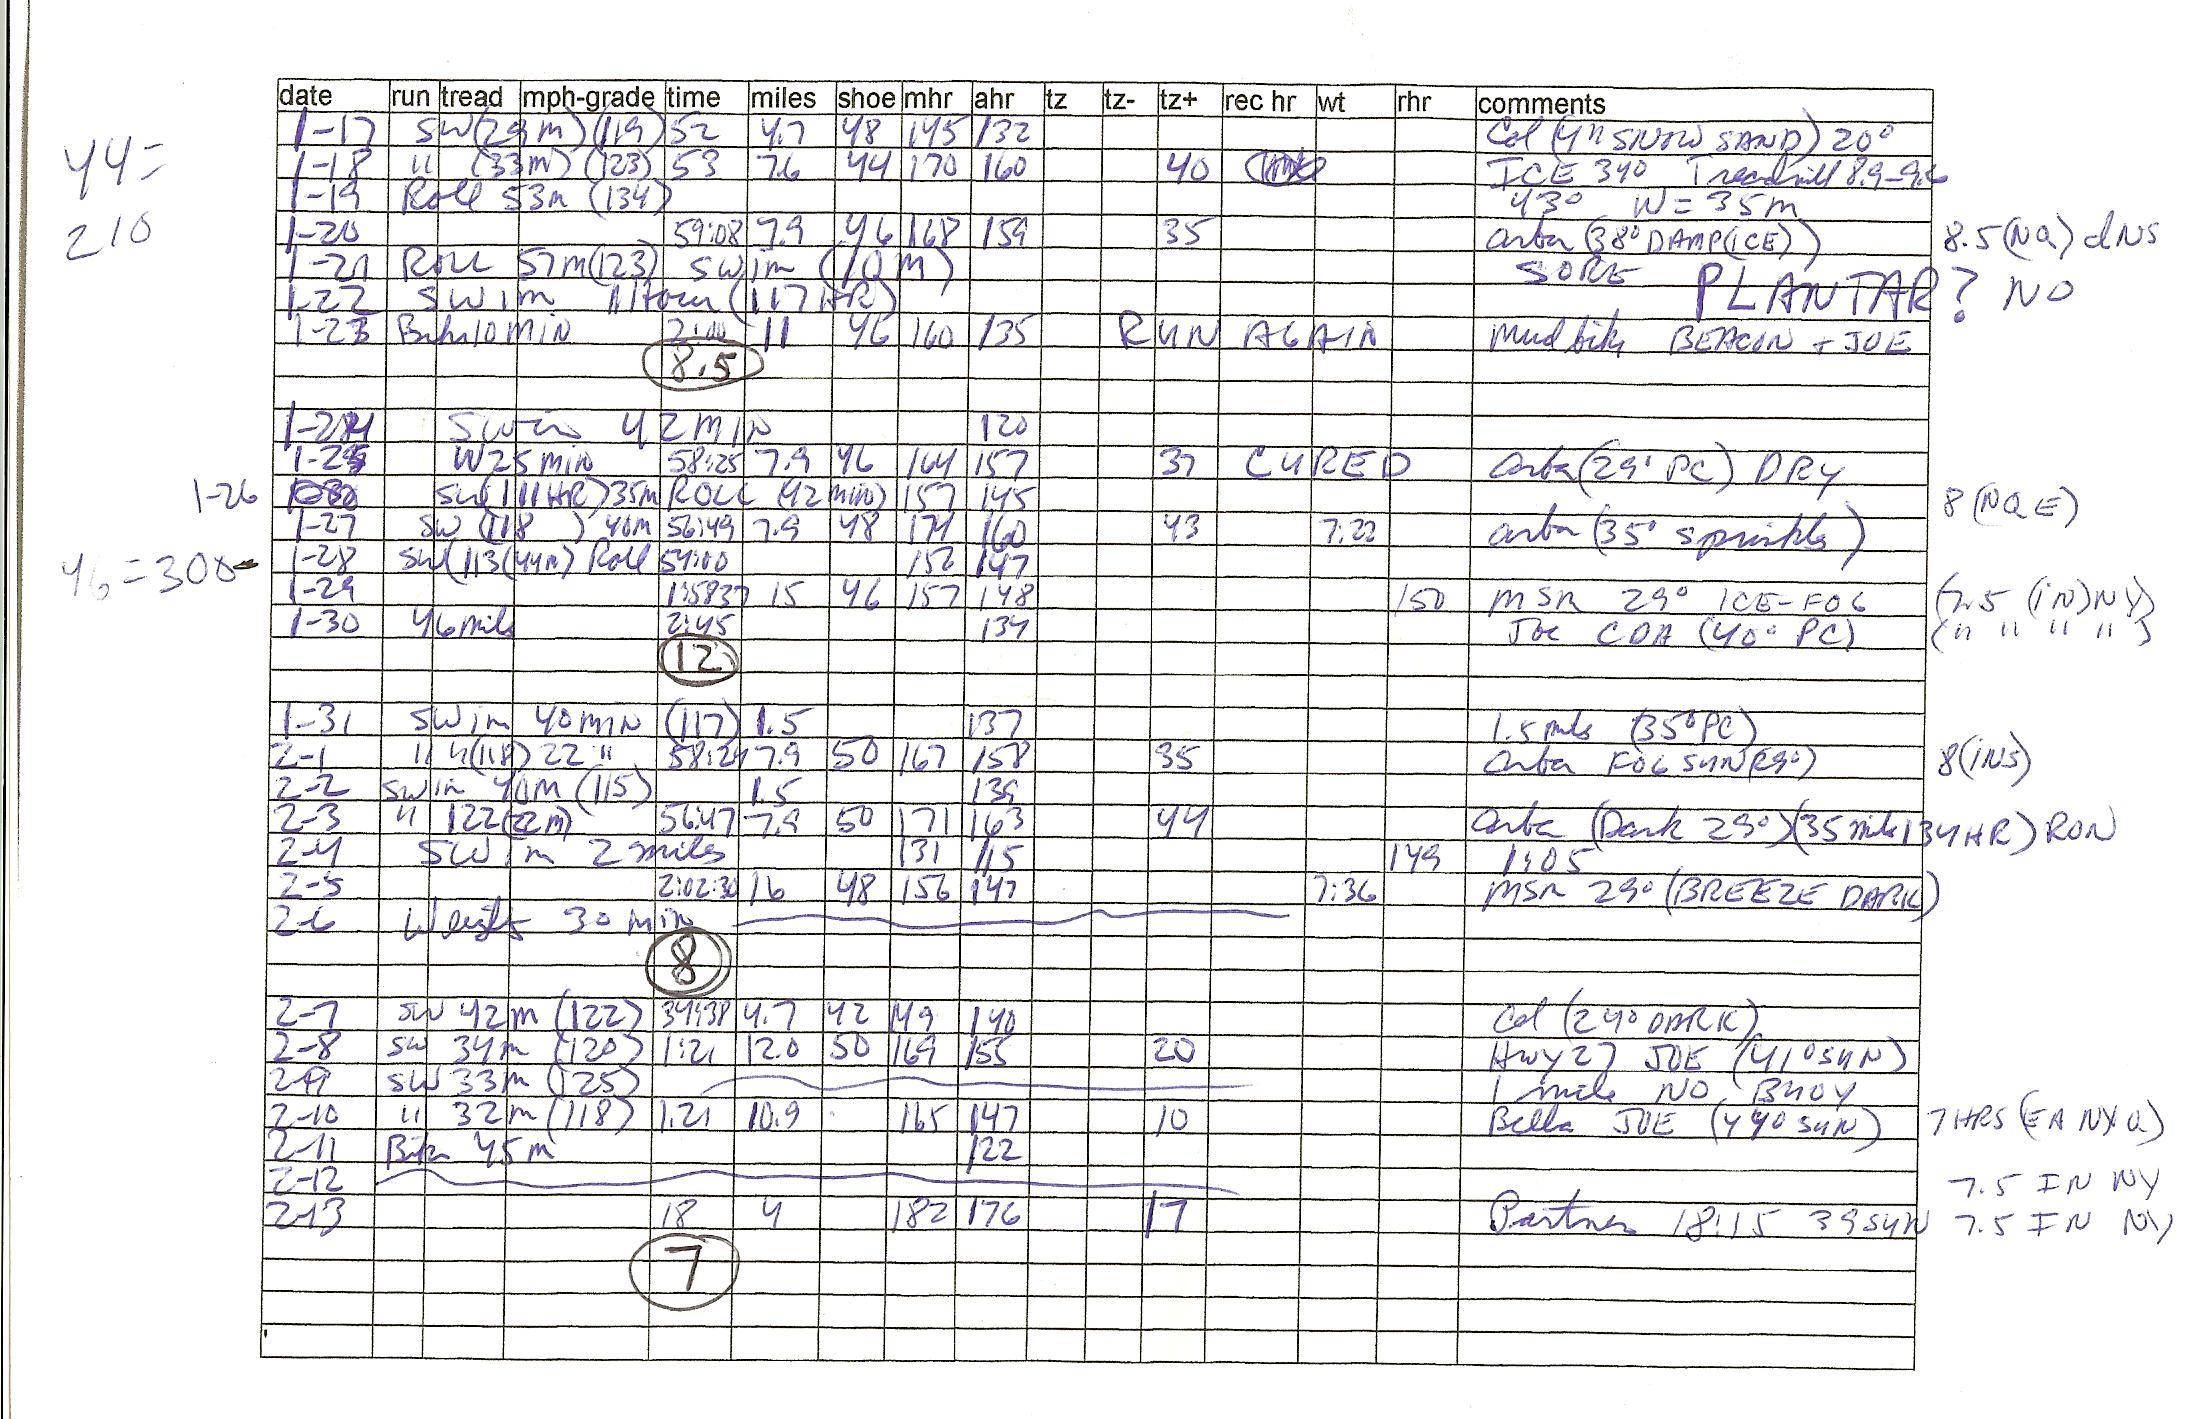 date run tread mph-grade time miles shoe mhr ahr tz tz- tz+ rec hr wt rhr comments
1-17 SW(29m)(119) 52 4.7 48 145 132 Col (4" SNOW SAND) 20°
44= 1-18 " (33m) (123) 53 7.6 44 170 160 40 ICE 34° Treadmill 8.9-9.6
1-19 Roll 53m (134) 43° W=35m
210 1-20 59:08 7.9 46 168 159 35 Arba (38° DAMP(ICE)) 8.5(NQ) dNS
1-21 ROLL 57m(123) SWim (10M) SORE PLANTAR? NO
1-22 SWim 1 Hour (117HR)
1-23 Bike 10 MIN 2:00 11 46 160 135 RUN AGAIN Mud bike BEACON + JOE
8.5
1-24 Swim 42 MIN 120
1-25 W25 min 58:25 7.9 46 164 157 37 CURED Arba (29° PC) DRY
1-26 SW(111HR)35m ROLL (42 min) 157 145 8 (NQE)
1-27 SW (118 ) 40m 56:49 7.9 48 174 160 43 7:22 Arba (35° Sprinkles)
46=300 1-28 SW(113(44m) Roll 54:00 152 147
1-29 1:58:37 15 46 157 148 150 MSR 29° ICE-FOG (7.5 (IN) NY)
1-30 46 mile 2:45 134 Joe CDA (40° PC) (" " " ")
12
1-31 SWim 40MIN (117) 1.5 137 1.5 mile (35° PC)
2-1 " "(118) 22 " 58:24 7.9 50 167 158 35 Arba FOG SUN(29°) 8(INS)
2-2 SWim 40M (115) 1.5 139
2-3 " 122(22m) 56:47 7.9 50 171 163 44 Arba (Dark 29°)(35 mile 134HR) RON
2-4 SWim 2 miles 131 115 149 1:05
2-5 2:02:30 16 48 156 147 7:36 MSR 29° (BREEZE DARK)
2-6 Weights 30 min
8
2-7 SW 42m (122) 34:38 4.7 42 149 140 Col (24° DARK)
2-8 SW 34m (120) 1:21 12.0 50 169 155 20 HWY 27 JOE (41° SUN)
2-9 SW 33m (125) 1 mile NO BUOY
2-10 " 32m (118) 1:21 10.9 165 147 10 Bella JOE (44° SUN) 7HRS (EA NYQ)
2-11 Bike 45m 122
2-12 7.5 IN NY
2-13 18 4 182 176 17 Partner 18:15 39 SUN 7.5 IN NY
7